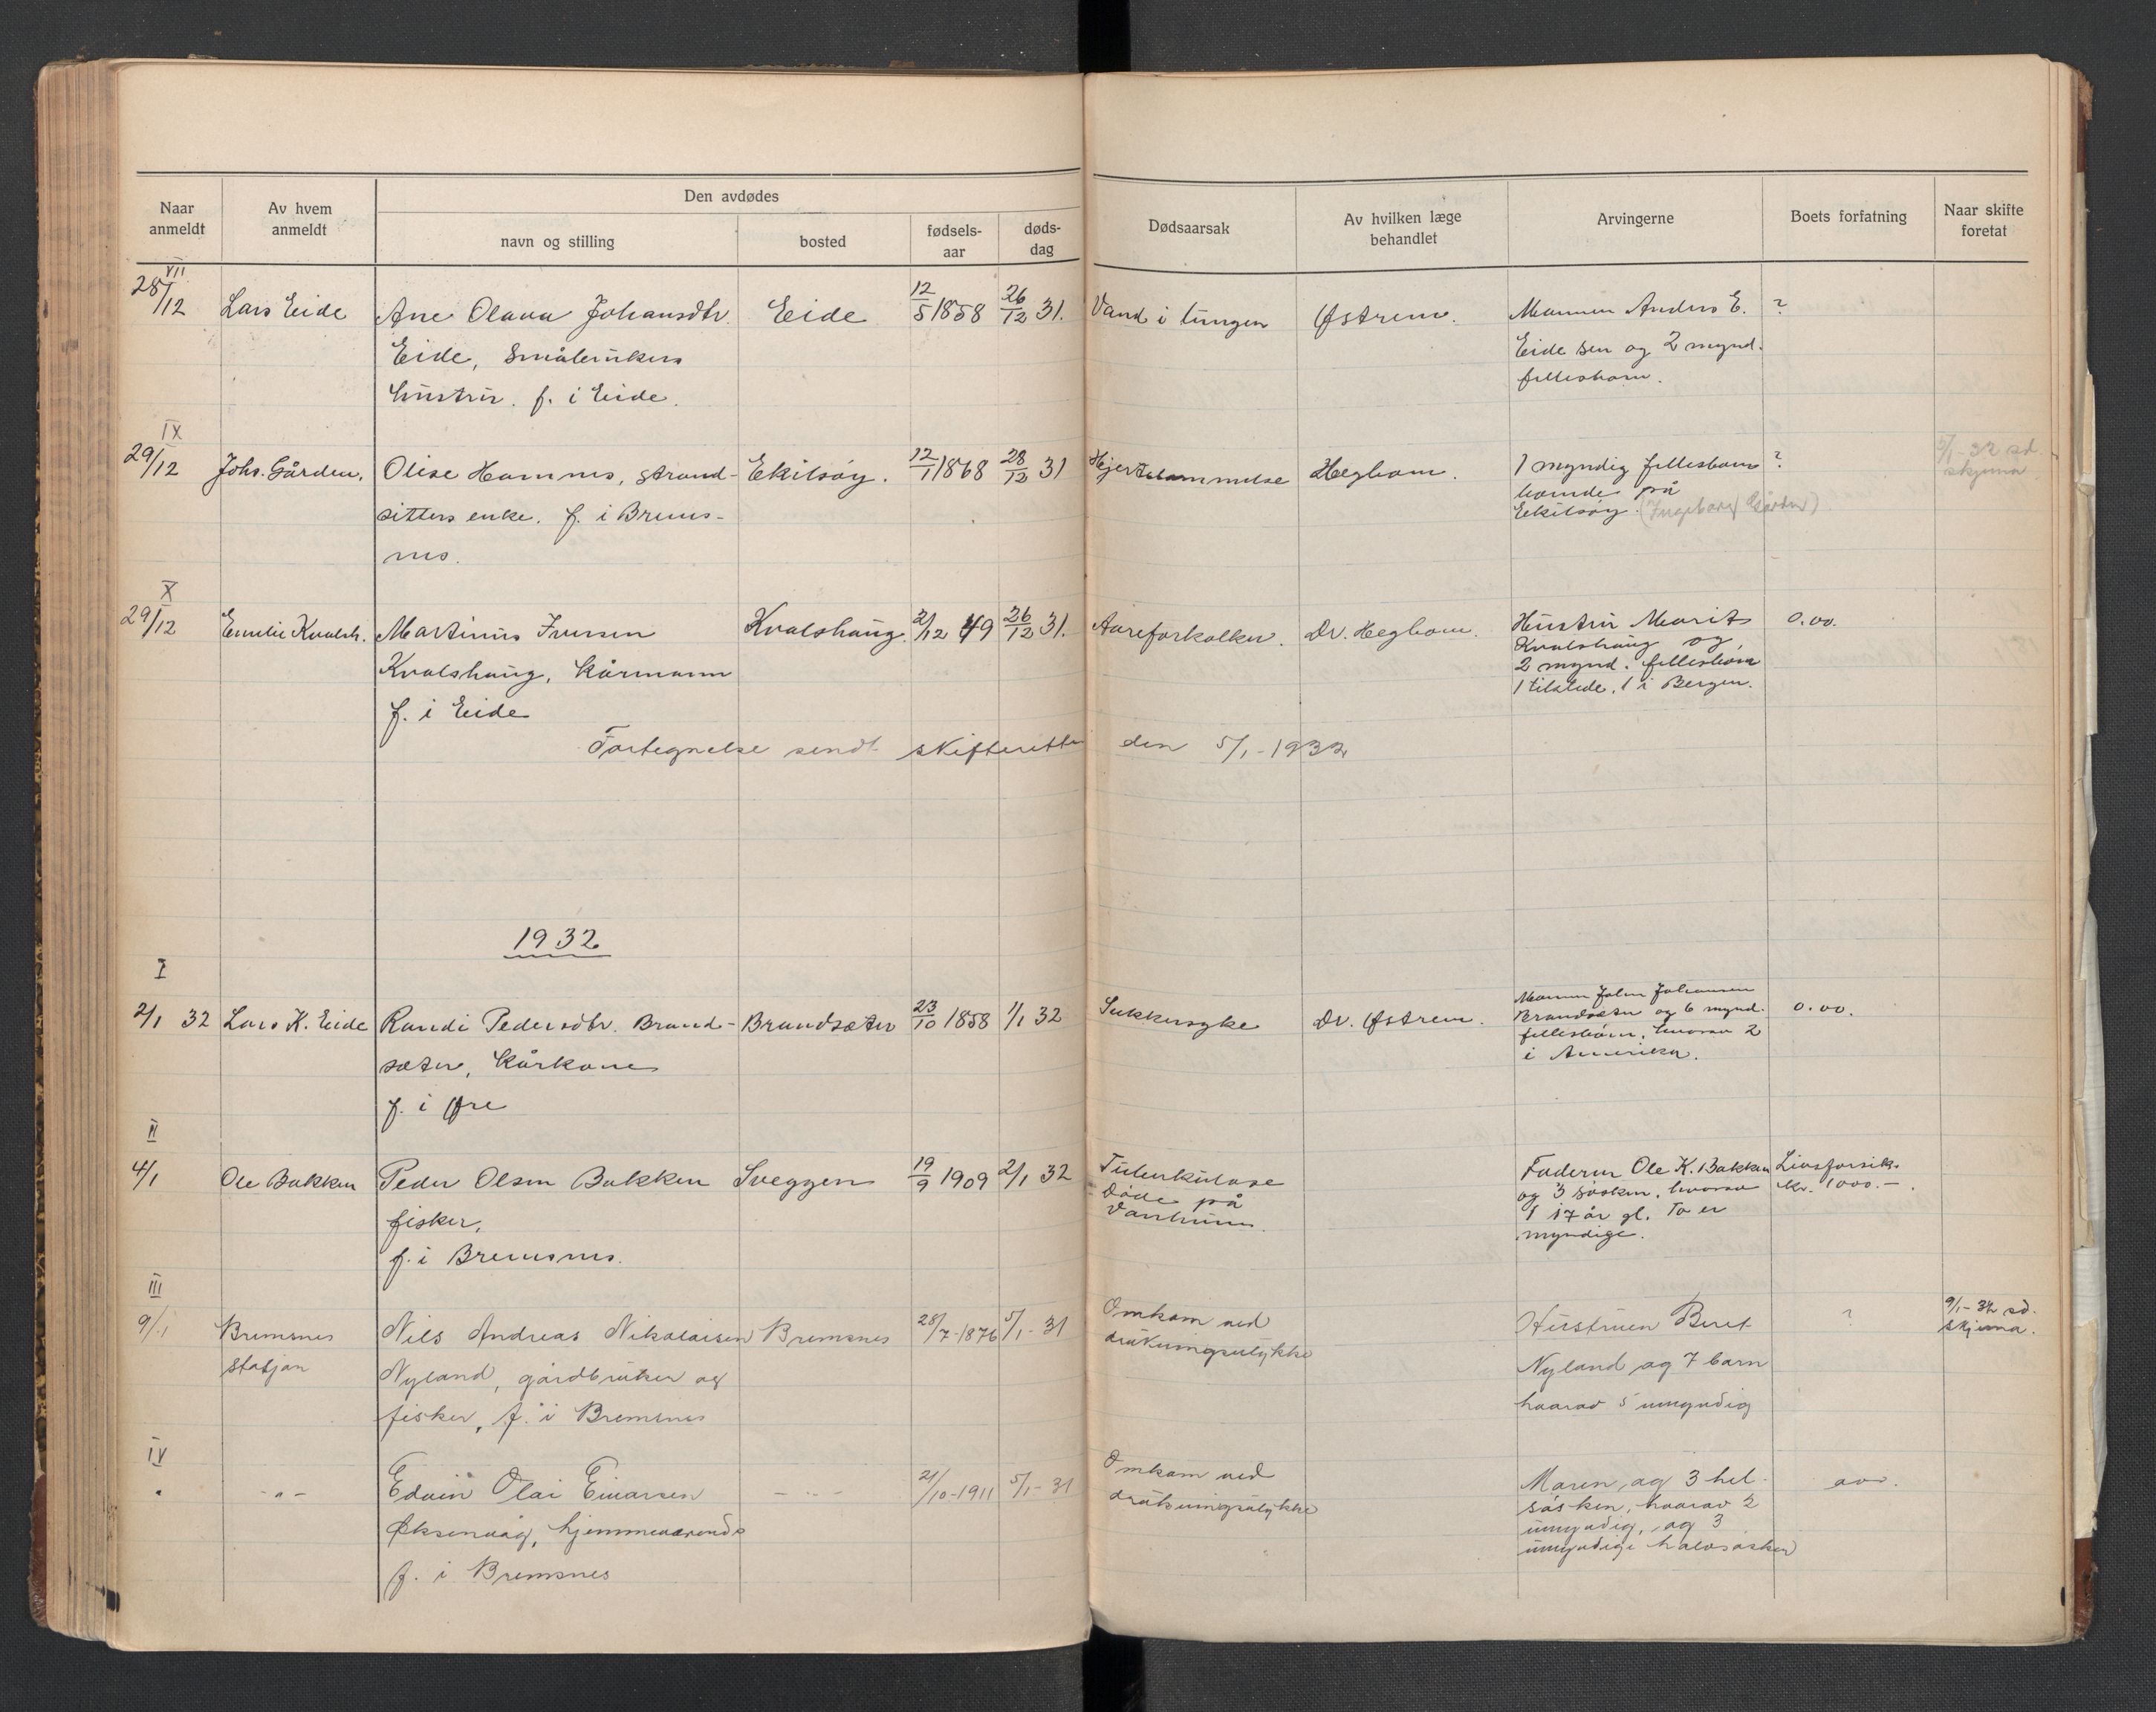 Den avdødes
Naar anmeldt
Av hvem anmeldt
navn og stilling
bosted
fødsels-aar
døds-dag
Dødsaarsak
Av hvilken læge behandlet
Arvingerne
Boets forfatning
Naar skifte foretat
VII
28/12 Lars Eide Ane Olava Johansdtr. Eide 12/5 1858 26/12 31. Vand i lungen Østrem. Mannen Anders E. ?
Eide, Småbrukers Eide sen og 2 mynd.
hustru. f. i Eide. fellesbarn.
IX
29/12 Johs. Gården. Olise Hamnes, strand- Ekilsøy. 12/1 1868 28/12 31 Hjertelammelse Hegbom. 1 myndig fellesbarn ? 5/1-32 sd.
sitters enke. f. i Brems- boende på skjema
nes. Ekilsøy. (Ingeborg Gården)
X
29/12 Emelie Kvalsh. Martinus Iversen Kvalshaug. 2/12 49 26/12 31. Aareforkalkn. Dr. Hegbom. Hustru Marit 0.00.
Kvalshaug, kårmann Kvalshaug og
f. i Eide 2 mynd. fellesbarn
1 tilstede, 1 i Bergen.
Fortegnelse sendt skifteretten den 5/1-1932
1932
I
2/1 32 Lars K. Eide Randi Pedersdtr. Brand- Brandsæter 23/10 1858 1/1 32 Sukkersyke Dr. Østrem. Mannen John Johansen 0.00.
sæter, kårkone Brandsæter og 6 mynd.
f. i Øre fellesbarn, hvorav 2
i Amerika.
II
4/1 Ole Bakken Peder Olsen Bakken Sveggen 19/9 1909 2/1 32 Tuberkulose Faderen Ole K. Bakken Livsforsik.
fisker, Døde på og 3 søsken, hvorav kr. 1000.-.
f. i Bremsnes. 1 17 år gl. To er
myndige.
III
9/1 Bremsnes Nils Andreas Nikolaisen Bremsnes 28/7-1876 5/1-31 Omkom ved Hustruen Beret ? 9/1-32 sd.
stasjon Nyland, gårdbruker og drukningsulykke Nyland og 7 barn skjema.
fisker, f. i Bremsnes hvorav 5 umyndig
IV
" -"- Edvin Olai Einarsen -"- 21/10-1911 5/1-31 Omkom ved Moren, og 3 hel-
Øksenvåg, hjemmeværende drukningsulykke søsken, hvorav 2
f. i Bremsnes umyndig, og 3
umyndige halvsøsken